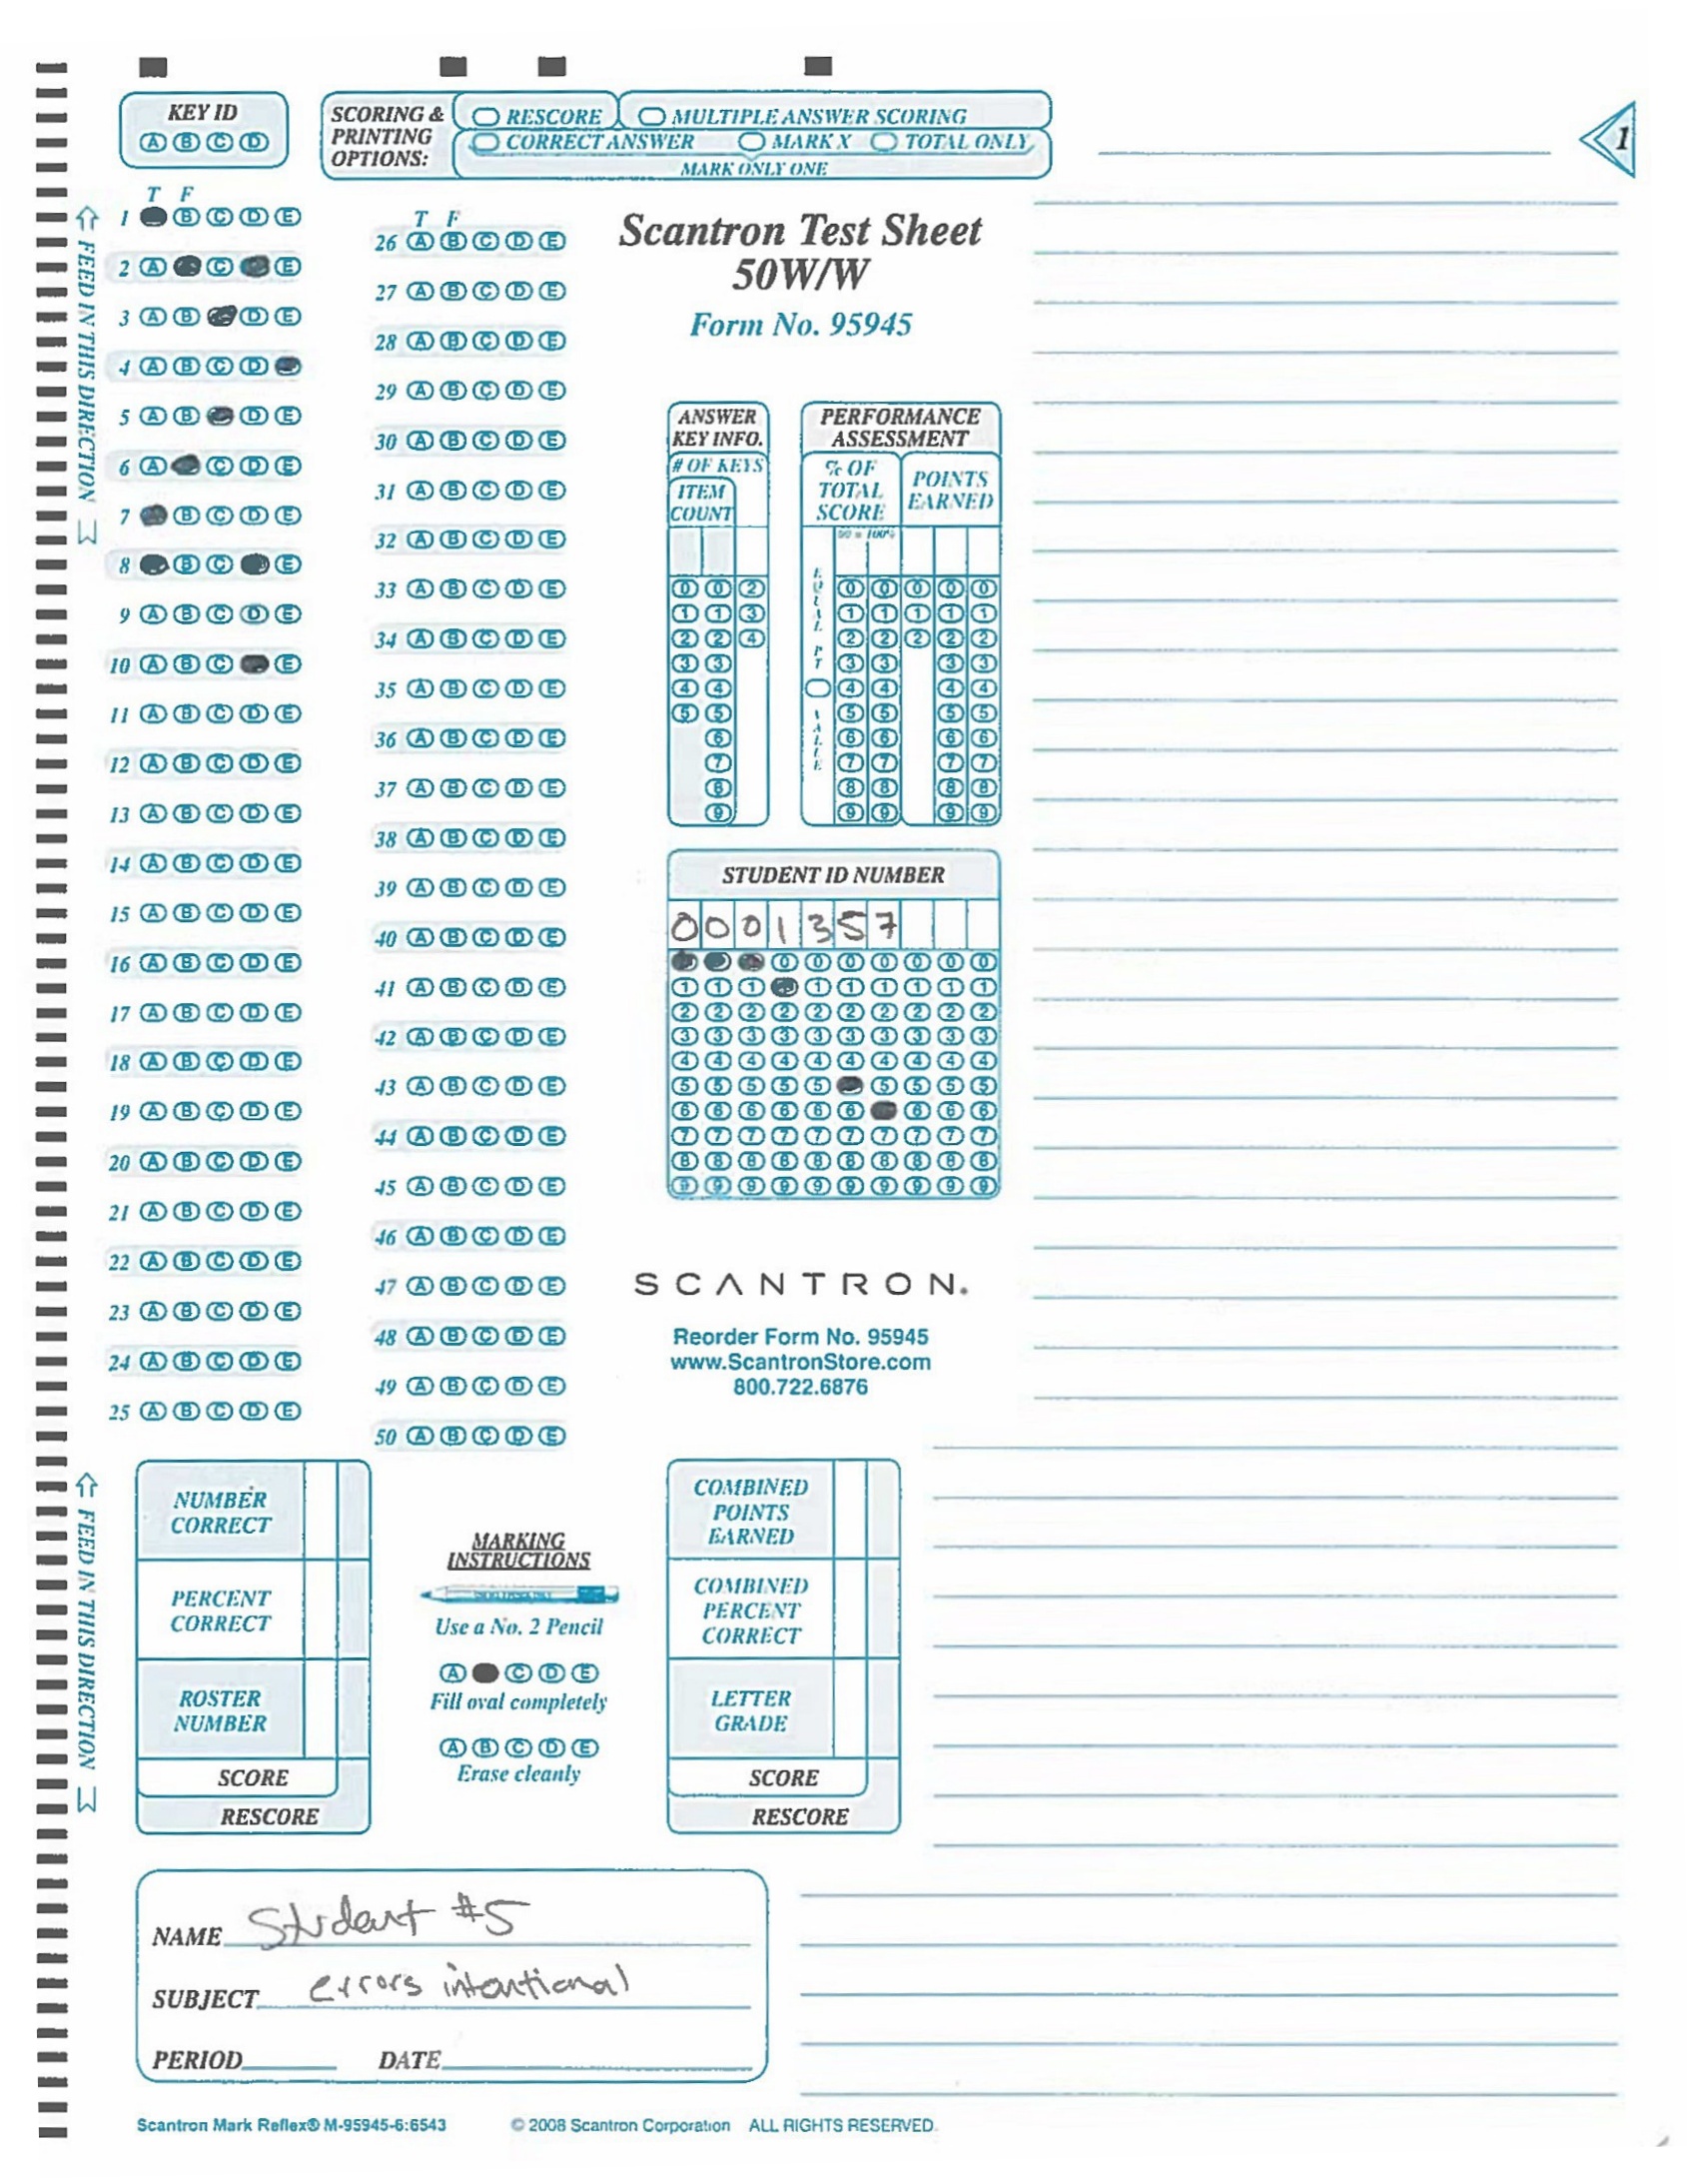 KEY ID
A B C D
SCORING & PRINTING OPTIONS:
RESCORE MULTIPLE ANSWER SCORING
CORRECT ANSWER MARK X TOTAL ONLY
MARK ONLY ONE
1
FEED IN THIS DIRECTION
T F
1 B C D E
2 A C E
3 A B D E
4 A B C D
5 A B D E
6 A C D E
7 B C D E
8 B C E
9 A B C D E
10 A B C E
11 A B C D E
12 A B C D E
13 A B C D E
14 A B C D E
15 A B C D E
16 A B C D E
17 A B C D E
18 A B C D E
19 A B C D E
20 A B C D E
21 A B C D E
22 A B C D E
23 A B C D E
24 A B C D E
25 A B C D E
T F
26 A B C D E
27 A B C D E
28 A B C D E
29 A B C D E
30 A B C D E
31 A B C D E
32 A B C D E
33 A B C D E
34 A B C D E
35 A B C D E
36 A B C D E
37 A B C D E
38 A B C D E
39 A B C D E
40 A B C D E
41 A B C D E
42 A B C D E
43 A B C D E
44 A B C D E
45 A B C D E
46 A B C D E
47 A B C D E
48 A B C D E
49 A B C D E
50 A B C D E
Scantron Test Sheet
50W/W
Form No. 95945
ANSWER
KEY INFO.
# OF KEYS
ITEM
COUNT
0 0 2
1 1 3
2 2 4
3 3
4 4
5 5
6
7
8
9
PERFORMANCE
ASSESSMENT
% OF
TOTAL
SCORE
POINTS
EARNED
EQUAL PT VALUE
0 0 0 0 0
1 1 1 1 1
2 2 2 2 2
3 3 3 3
4 4 4 4
5 5 5 5
6 6 6 6
7 7 7 7
8 8 8 8
9 9 9 9
STUDENT ID NUMBER
0001357
0 0 0 0 0 0 0
1 1 1 1 1 1 1 1 1
2 2 2 2 2 2 2 2 2 2
3 3 3 3 3 3 3 3 3 3
4 4 4 4 4 4 4 4 4 4
5 5 5 5 5 5 5 5 5
6 6 6 6 6 6 6 6 6
7 7 7 7 7 7 7 7 7 7
8 8 8 8 8 8 8 8 8 8
9 9 9 9 9 9 9 9 9 9
SCANTRON®
Reorder Form No. 95945
www.ScantronStore.com
800.722.6876
FEED IN THIS DIRECTION
NUMBER
CORRECT
PERCENT
CORRECT
ROSTER
NUMBER
SCORE
RESCORE
MARKING
INSTRUCTIONS
Use a No. 2 Pencil
A C D E
Fill oval completely
A B C D E
Erase cleanly
COMBINED
POINTS
EARNED
COMBINED
PERCENT
CORRECT
LETTER
GRADE
SCORE
RESCORE
NAME Student #5
SUBJECT errors intentional
PERIOD DATE
Scantron Mark Reflex® M-95945-6:6543 © 2008 Scantron Corporation ALL RIGHTS RESERVED.